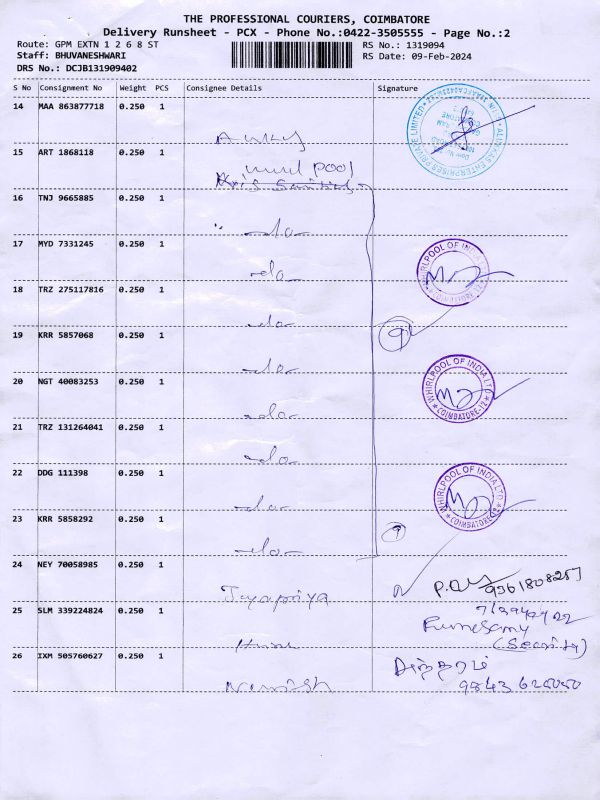 THE PROFESSIONAL COURIERS, COIMBATORE
Delivery Runsheet - PCX - Phone No.:0422-3505555 - Page No.:2
Route: GPM EXTN 1 2 6 8 ST RS No.: 1319094
Staff: BHUVANESHWARI RS Date: 09-Feb-2024
DRS No.: DCJB131909402
S No Consignment No Weight PCS Consignee Details Signature
14 MAA 863877718 0.250 1
15 ART 1868118 0.250 1
pool
16 TNJ 9665885 0.250 1
-do-
17 MYD 7331245 0.250 1
-do-
WHIRLPOOL OF INDIA LTD
COIMBATORE-12
18 TRZ 275117816 0.250 1
-do-
9
19 KRR 5857068 0.250 1
-do-
WHIRLPOOL OF INDIA LTD
COIMBATORE-12
20 NGT 40083253 0.250 1
-do-
21 TRZ 131264041 0.250 1
-do-
22 DDG 111398 0.250 1
-do-
WHIRLPOOL OF INDIA LTD
COIMBATORE-12
23 KRR 5858292 0.250 1
-do-
24 NEY 70058985 0.250 1
Jayapriya
9361808257
25 SLM 339224824 0.250 1
(Security)
26 IXM 505760627 0.250 1
9843 625050